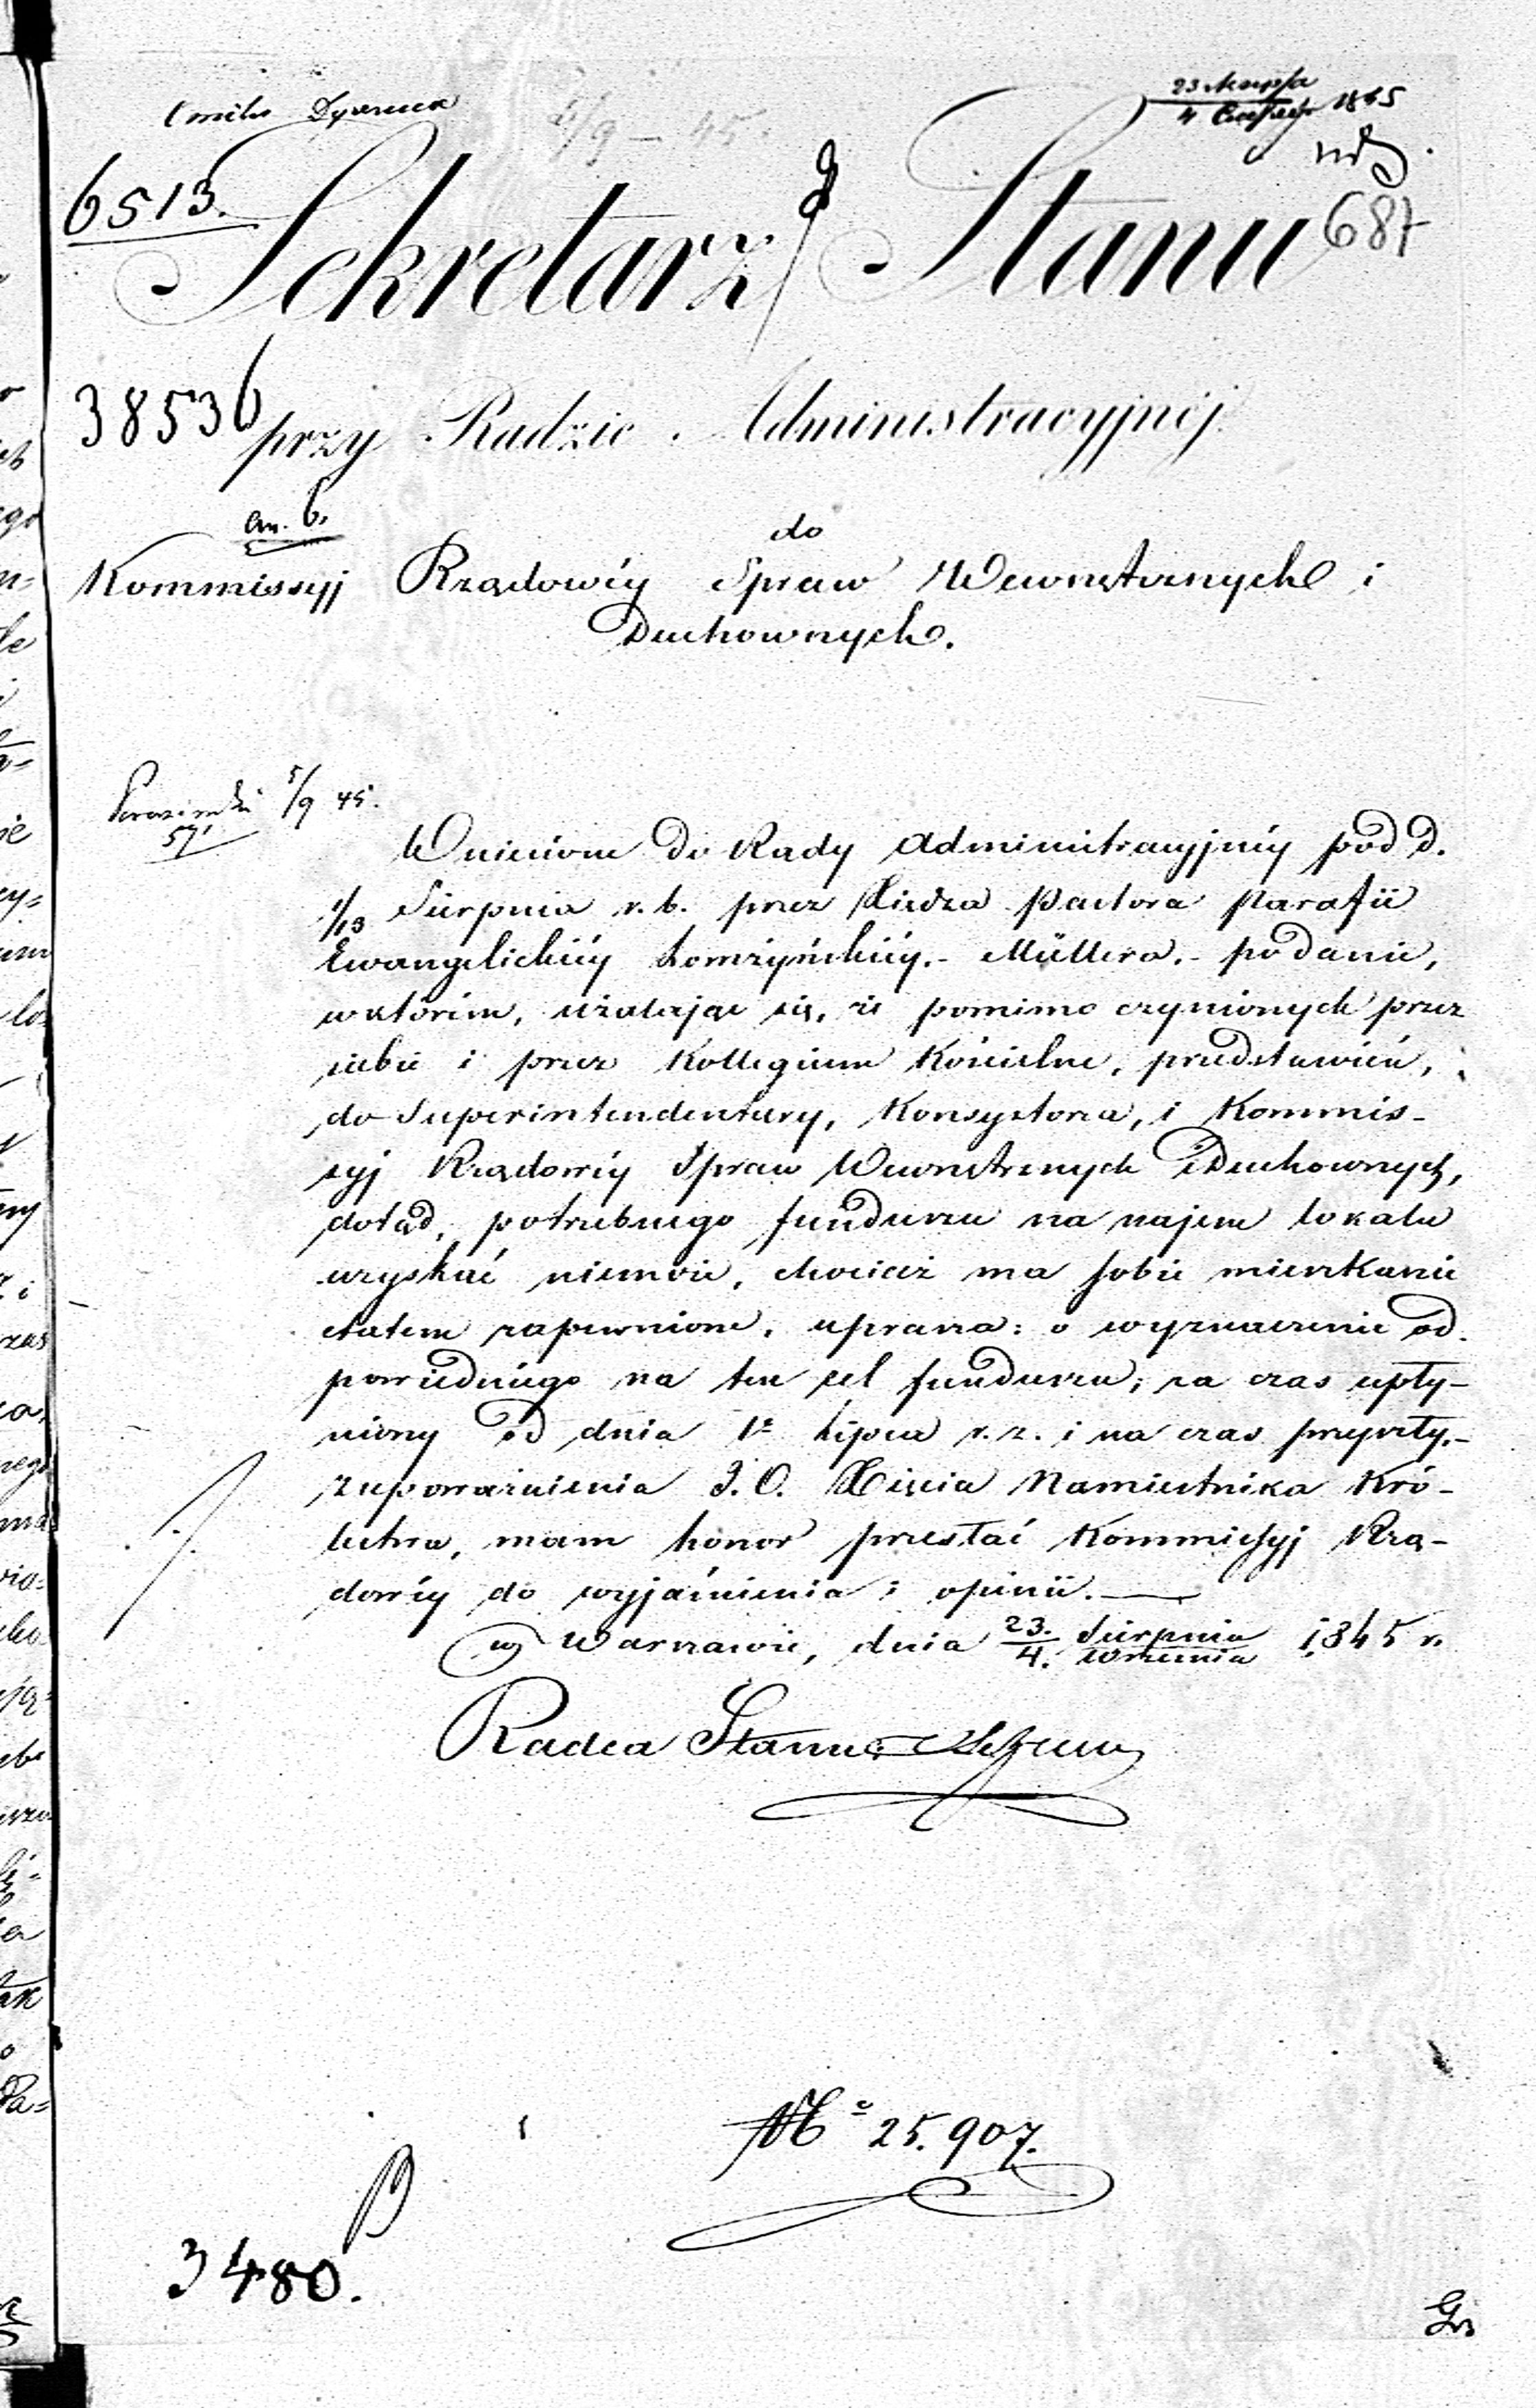 6513.
Sekretarz Stanu 687
38536
przy Radzie Administracyjnéj
an. 6.
do
Kommissyj Rządowéy Spraw Wewnętrznych i
Duchownych.
5/9 45.
Wniesione do Rady Administracyjnéy pod d.
1/13 Sierpnia r. b. przez Xiedza Pastora Parafii
Ewangelickiéy Łomżyńskiéy.- Müllera.- podanie,
w którém, użalając się, że pomimo czynionych przez
siebie i przez Kollegium Kościelne, przedstawień,
do Superintendentury, Konsystorza, i Kommis-
syj Rządowéy Spraw Wewnętrznych i Duchownych,
dotąd, potrzebnego funduszu na najem lokalu
uzyskać niemoże, chociaż ma sobie mieszkanie
etatem zapewnione, uprasza: o wyznaczenie od-
powiedniego na ten cel funduszu, za czas upły-
niony od dnia 1º Lipca r. z. i na czas przyszły.-
z upoważnienia J. O. Xięcia Namiestnika Kró-
lestwa, mam honor przesłać Kommissyj Rzą-
dowéy do wyjaśnienia i opinii.—
w Warszawie, dnia 23. Sierpnia / 4. Września 1845 r.
Radca Stanu
№ 25.907.
3480.